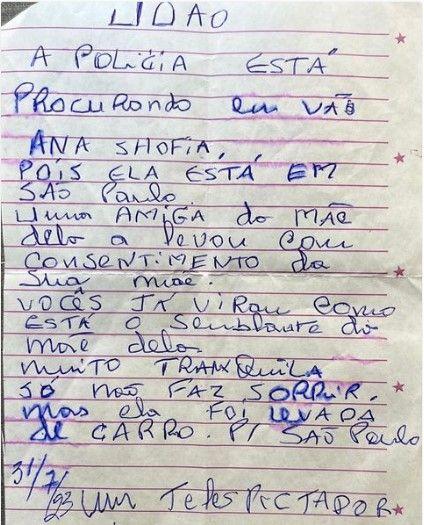 LIDÃO
A POLICIA ESTÁ
PROCURANDO em VÃO
ANA SHOFIA,
POIS ELA ESTÁ EM
SÃO Paulo
Uma AMIGA do MÃE
dela a levou com
CONSENTIMENTO da
sua mãe.
VOCÊS JÁ VIRAM COMO
ESTÁ O Semblante da
mãe dela
MUITO TRANXQUILA
SÓ não FAZ SORRIR,
mas ela FOI LEVADA
de CARRO. P/ SÃO Paulo
31/7/23 Um TelesPICTADOR